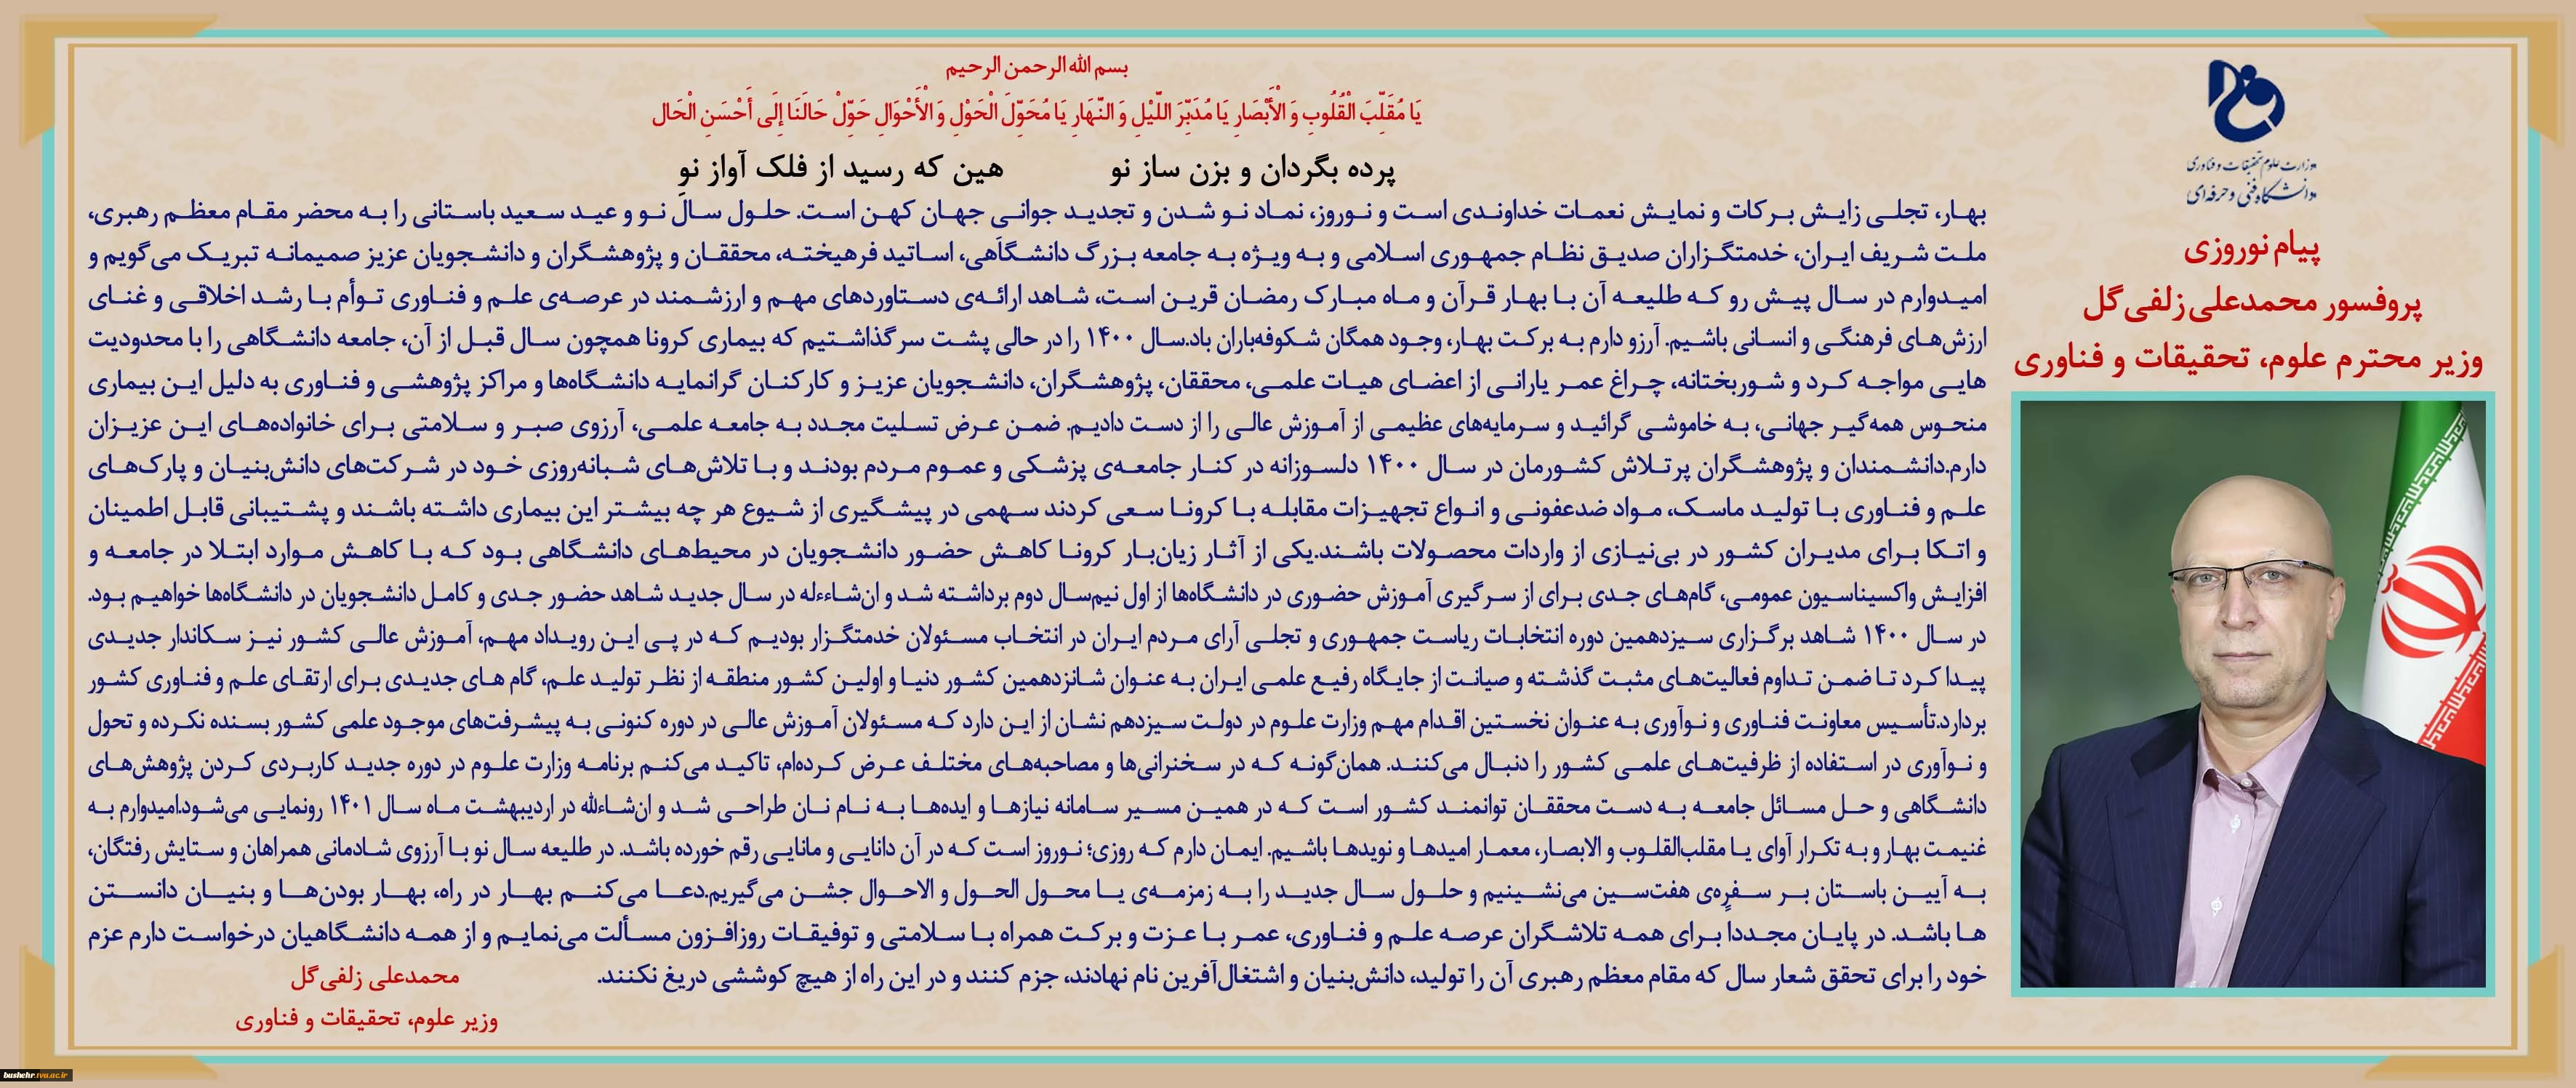 بسم الله الرحمن الرحیم
یَا مُقَلِّبَ الْقُلُوبِ وَ الْأَبْصَارِ یَا مُدَبِّرَ اللَّیْلِ وَ النَّهَارِ یَا مُحَوِّلَ الْحَوْلِ وَ الْأَحْوَالِ حَوِّلْ حَالَنَا إِلَى أَحْسَنِ الْحَال
پرده بگردان و بزن ساز نو هین که رسید از فلک آواز نو
وزارت علوم تحقیقات و فناوری
دانشگاه فنی و حرفه‌ای
پیام نوروزی
پروفسور محمدعلی زلفی‌گل
وزیر محترم علوم، تحقیقات و فناوری
بهار، تجلی زایش برکات و نمایش نعمات خداوندی است و نوروز، نماد نو شدن و تجدید جوانی جهان کهن است. حلول سال نو و عید سعید باستانی را به محضر مقام معظم رهبری،
ملت شریف ایران، خدمتگزاران صدیق نظام جمهوری اسلامی و به ویژه به جامعه بزرگ دانشگاهی، اساتید فرهیخته، محققان و پژوهشگران و دانشجویان عزیز صمیمانه تبریک می‌گویم و
امیدوارم در سال پیش رو که طلیعه آن با بهار قرآن و ماه مبارک رمضان قرین است، شاهد ارائه‌ی دستاوردهای مهم و ارزشمند در عرصه‌ی علم و فناوری توأم با رشد اخلاقی و غنای
ارزش‌های فرهنگی و انسانی باشیم. آرزو دارم به برکت بهار، وجود همگان شکوفه‌باران باد.سال ۱۴۰۰ را در حالی پشت سر گذاشتیم که بیماری کرونا همچون سال قبل از آن، جامعه دانشگاهی را با محدودیت
هایی مواجه کرد و شوربختانه، چراغ عمر یارانی از اعضای هیات علمی، محققان، پژوهشگران، دانشجویان عزیز و کارکنان گرانمایه دانشگاه‌ها و مراکز پژوهشی و فناوری به دلیل این بیماری
منحوس همه‌گیر جهانی، به خاموشی گرائید و سرمایه‌های عظیمی از آموزش عالی را از دست دادیم. ضمن عرض تسلیت مجدد به جامعه علمی، آرزوی صبر و سلامتی برای خانواده‌های این عزیزان
دارم.دانشمندان و پژوهشگران پرتلاش کشورمان در سال ۱۴۰۰ دلسوزانه در کنار جامعه‌ی پزشکی و عموم مردم بودند و با تلاش‌های شبانه‌روزی خود در شرکت‌های دانش‌بنیان و پارک‌های
علم و فناوری با تولید ماسک، مواد ضدعفونی و انواع تجهیزات مقابله با کرونا سعی کردند سهمی در پیشگیری از شیوع هر چه بیشتر این بیماری داشته باشند و پشتیبانی قابل اطمینان
و اتکا برای مدیران کشور در بی‌نیازی از واردات محصولات باشند.یکی از آثار زیان‌بار کرونا کاهش حضور دانشجویان در محیط‌های دانشگاهی بود که با کاهش موارد ابتلا در جامعه و
افزایش واکسیناسیون عمومی، گام‌های جدی برای از سرگیری آموزش حضوری در دانشگاه‌ها از اول نیم‌سال دوم برداشته شد و ان‌شاءءله در سال جدید شاهد حضور جدی و کامل دانشجویان در دانشگاه‌ها خواهیم بود.
در سال ۱۴۰۰ شاهد برگزاری سیزدهمین دوره انتخابات ریاست جمهوری و تجلی آرای مردم ایران در انتخاب مسئولان خدمتگزار بودیم که در پی این رویداد مهم، آموزش عالی کشور نیز سکاندار جدیدی
پیدا کرد تا ضمن تداوم فعالیت‌های مثبت گذشته و صیانت از جایگاه رفیع علمی ایران به عنوان شانزدهمین کشور دنیا و اولین کشور منطقه از نظر تولید علم، گام های جدیدی برای ارتقای علم و فناوری کشور
بردارد.تأسیس معاونت فناوری و نوآوری به عنوان نخستین اقدام مهم وزارت علوم در دولت سیزدهم نشان از این دارد که مسئولان آموزش عالی در دوره کنونی به پیشرفت‌های موجود علمی کشور بسنده نکرده و تحول
و نوآوری در استفاده از ظرفیت‌های علمی کشور را دنبال می‌کنند. همان‌گونه که در سخنرانی‌ها و مصاحبه‌های مختلف عرض کرده‌ام، تاکید می‌کنم برنامه وزارت علوم در دوره جدید کاربردی کردن پژوهش‌های
دانشگاهی و حل مسائل جامعه به دست محققان توانمند کشور است که در همین مسیر سامانه نیازها و ایده‌ها به نام نان طراحی شد و ان‌شاءلله در اردیبهشت ماه سال ۱۴۰۱ رونمایی می‌شود.امیدوارم به
غنیمت بهار و به تکرار آوای یا مقلب‌القلوب و الابصار، معمار امیدها و نویدها باشیم. ایمان دارم که روزی؛ نوروز است که در آن دانایی و مانایی رقم خورده باشد. در طلیعه سال نو با آرزوی شادمانی همراهان و ستایش رفتگان،
به آیین باستان بر سفره‌ی هفت‌سین می‌نشینیم و حلول سال جدید را به زمزمه‌ی یا محول الحول و الاحوال جشن می‌گیریم.دعا می‌کنم بهار در راه، بهار بودن‌ها و بنیان دانستن
ها باشد. در پایان مجددا برای همه تلاشگران عرصه علم و فناوری، عمر با عزت و برکت همراه با سلامتی و توفیقات روزافزون مسألت می‌نمایم و از همه دانشگاهیان درخواست دارم عزم
خود را برای تحقق شعار سال که مقام معظم رهبری آن را تولید، دانش‌بنیان و اشتغال‌آفرین نام نهادند، جزم کنند و در این راه از هیچ کوششی دریغ نکنند.
محمدعلی زلفی‌گل
وزیر علوم، تحقیقات و فناوری
bushehr.tvu.ac.ir